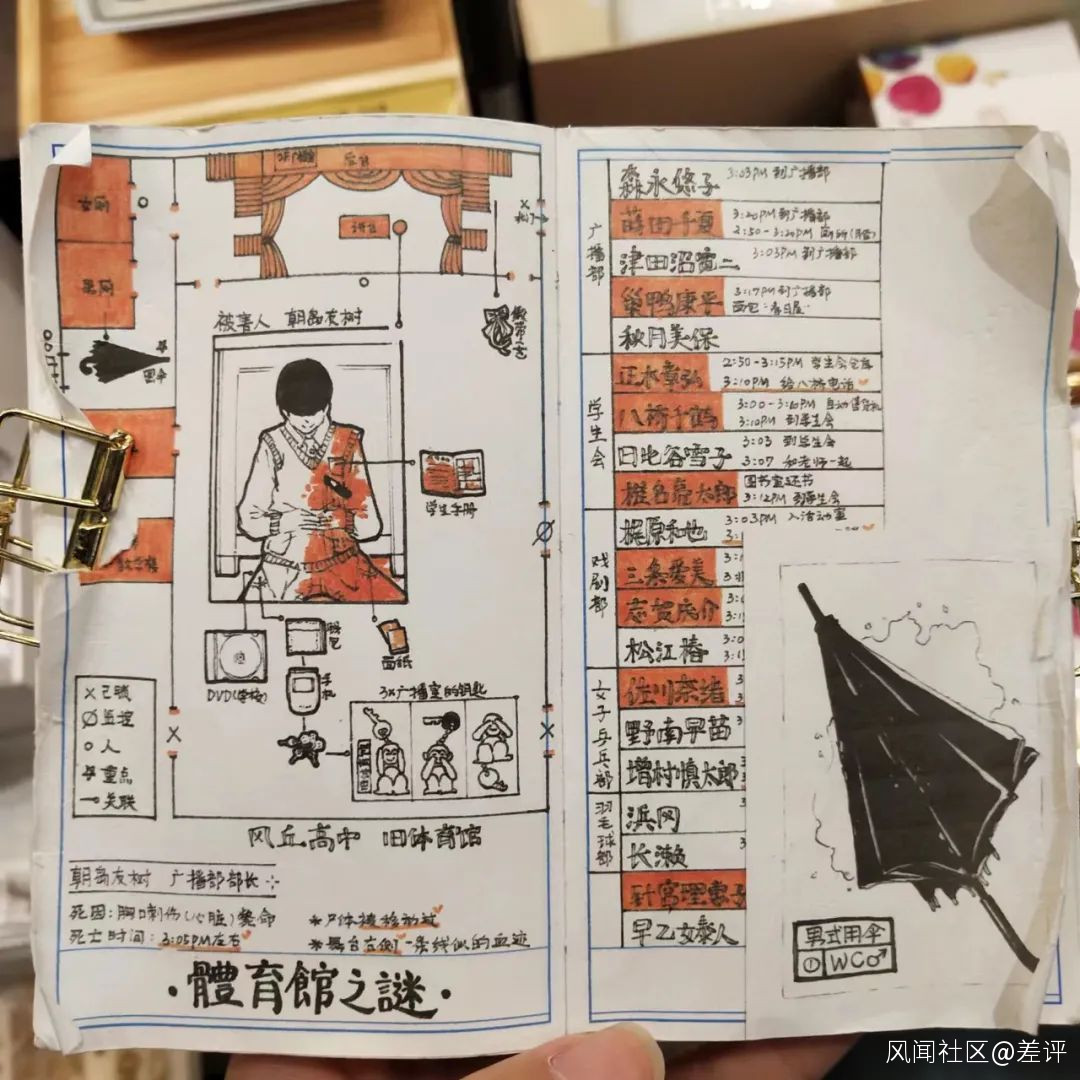 女厕
男厕
后台
讲台
被害人 朝岛友树
雨伞
学生手册
DVD(空格)
钱包
手机
面纸
3x广播室的钥匙
X 已锁
Ø 监控
o 人
重点
关联
风丘高中 旧体育馆
朝岛友树 广播部部长
死因:胸口刺伤(心脏)毙命
死亡时间:3:05PM左右
*尸体被移动过
*舞台左侧一条线似的血迹
·體育館之謎·
广播部
森永悠子 3:03PM 到广播部
莳田千夏 3:20PM到广播部
2:50-3:20PM 厕所
津田沼雷二 3:03PM到广播部
巢鸭康平 3:17PM到广播部
面包:春日屋
秋月美保
学生会
正木章弘 2:50-3:15PM 学生会仓库
3:10PM 给八桥电话
八桥千鹤 3:00-3:10PM 自动售货机
3:10PM 到学生会
日比谷雪子 3:03 到学生会
3:07 和老师一起
椎名亮太郎 图书室还书
3:12PM 到学生会
戏剧部
梶原和也 3:03PM 入活动室
三条爱美
志贺庆介
松江椿
女子乒乓部
佐川奈绪
野南早苗
增村慎太郎
羽毛球部
浜冈
长濑
针宫理惠子
早乙女泰人
男式用伞
① WC♂
风闻社区@差评